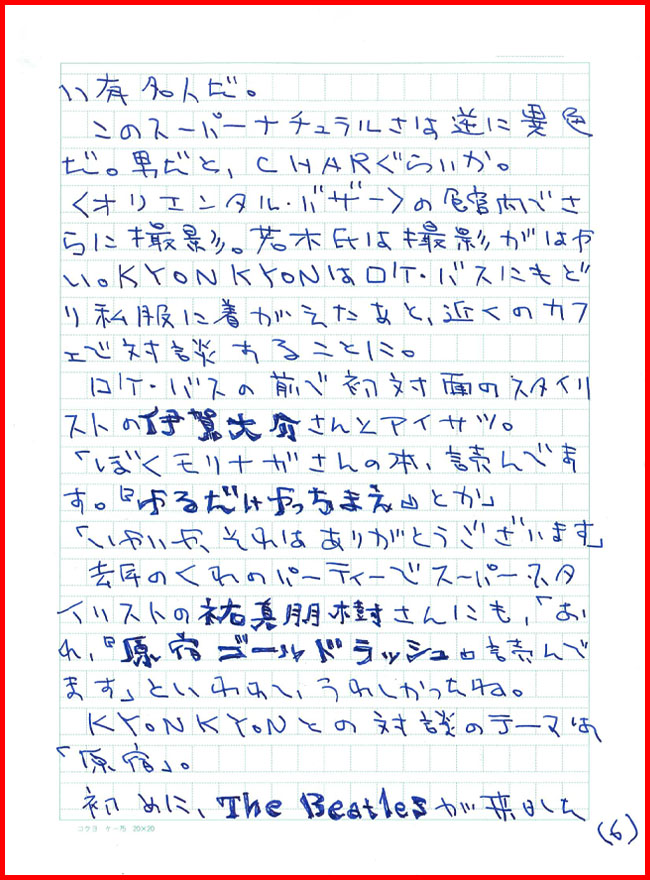 い有名人だ。
このスーパーナチュラルさは逆に異色
だ。男だと、CHARぐらいか。
〈オリエンタル・バザー〉の店内でさ
らに撮影。若木氏は撮影がはや
い。KYON KYONはロケ・バスにもど
り私服に着がえたあと、近くのカフ
ェで対談することに。
ロケ・バスの前で初対面のスタイリ
ストの伊賀大介さんとアイサツ。
「ぼくモリナガさんの本、読んでま
す。『やるだけやっちまえ』とか」
「いやいや、それはありがとうございます」
去年のくれのパーティーでスーパー・スタ
イリストの祐真朋樹さんにも、「お
れ、『原宿ゴールドラッシュ』読んで
ます」といわれて、うれしかったね。
KYON KYONとの対談のテーマは
「原宿」。
初めに、The Beatlesが来日した
(6)
コクヨ ケー75 20×20